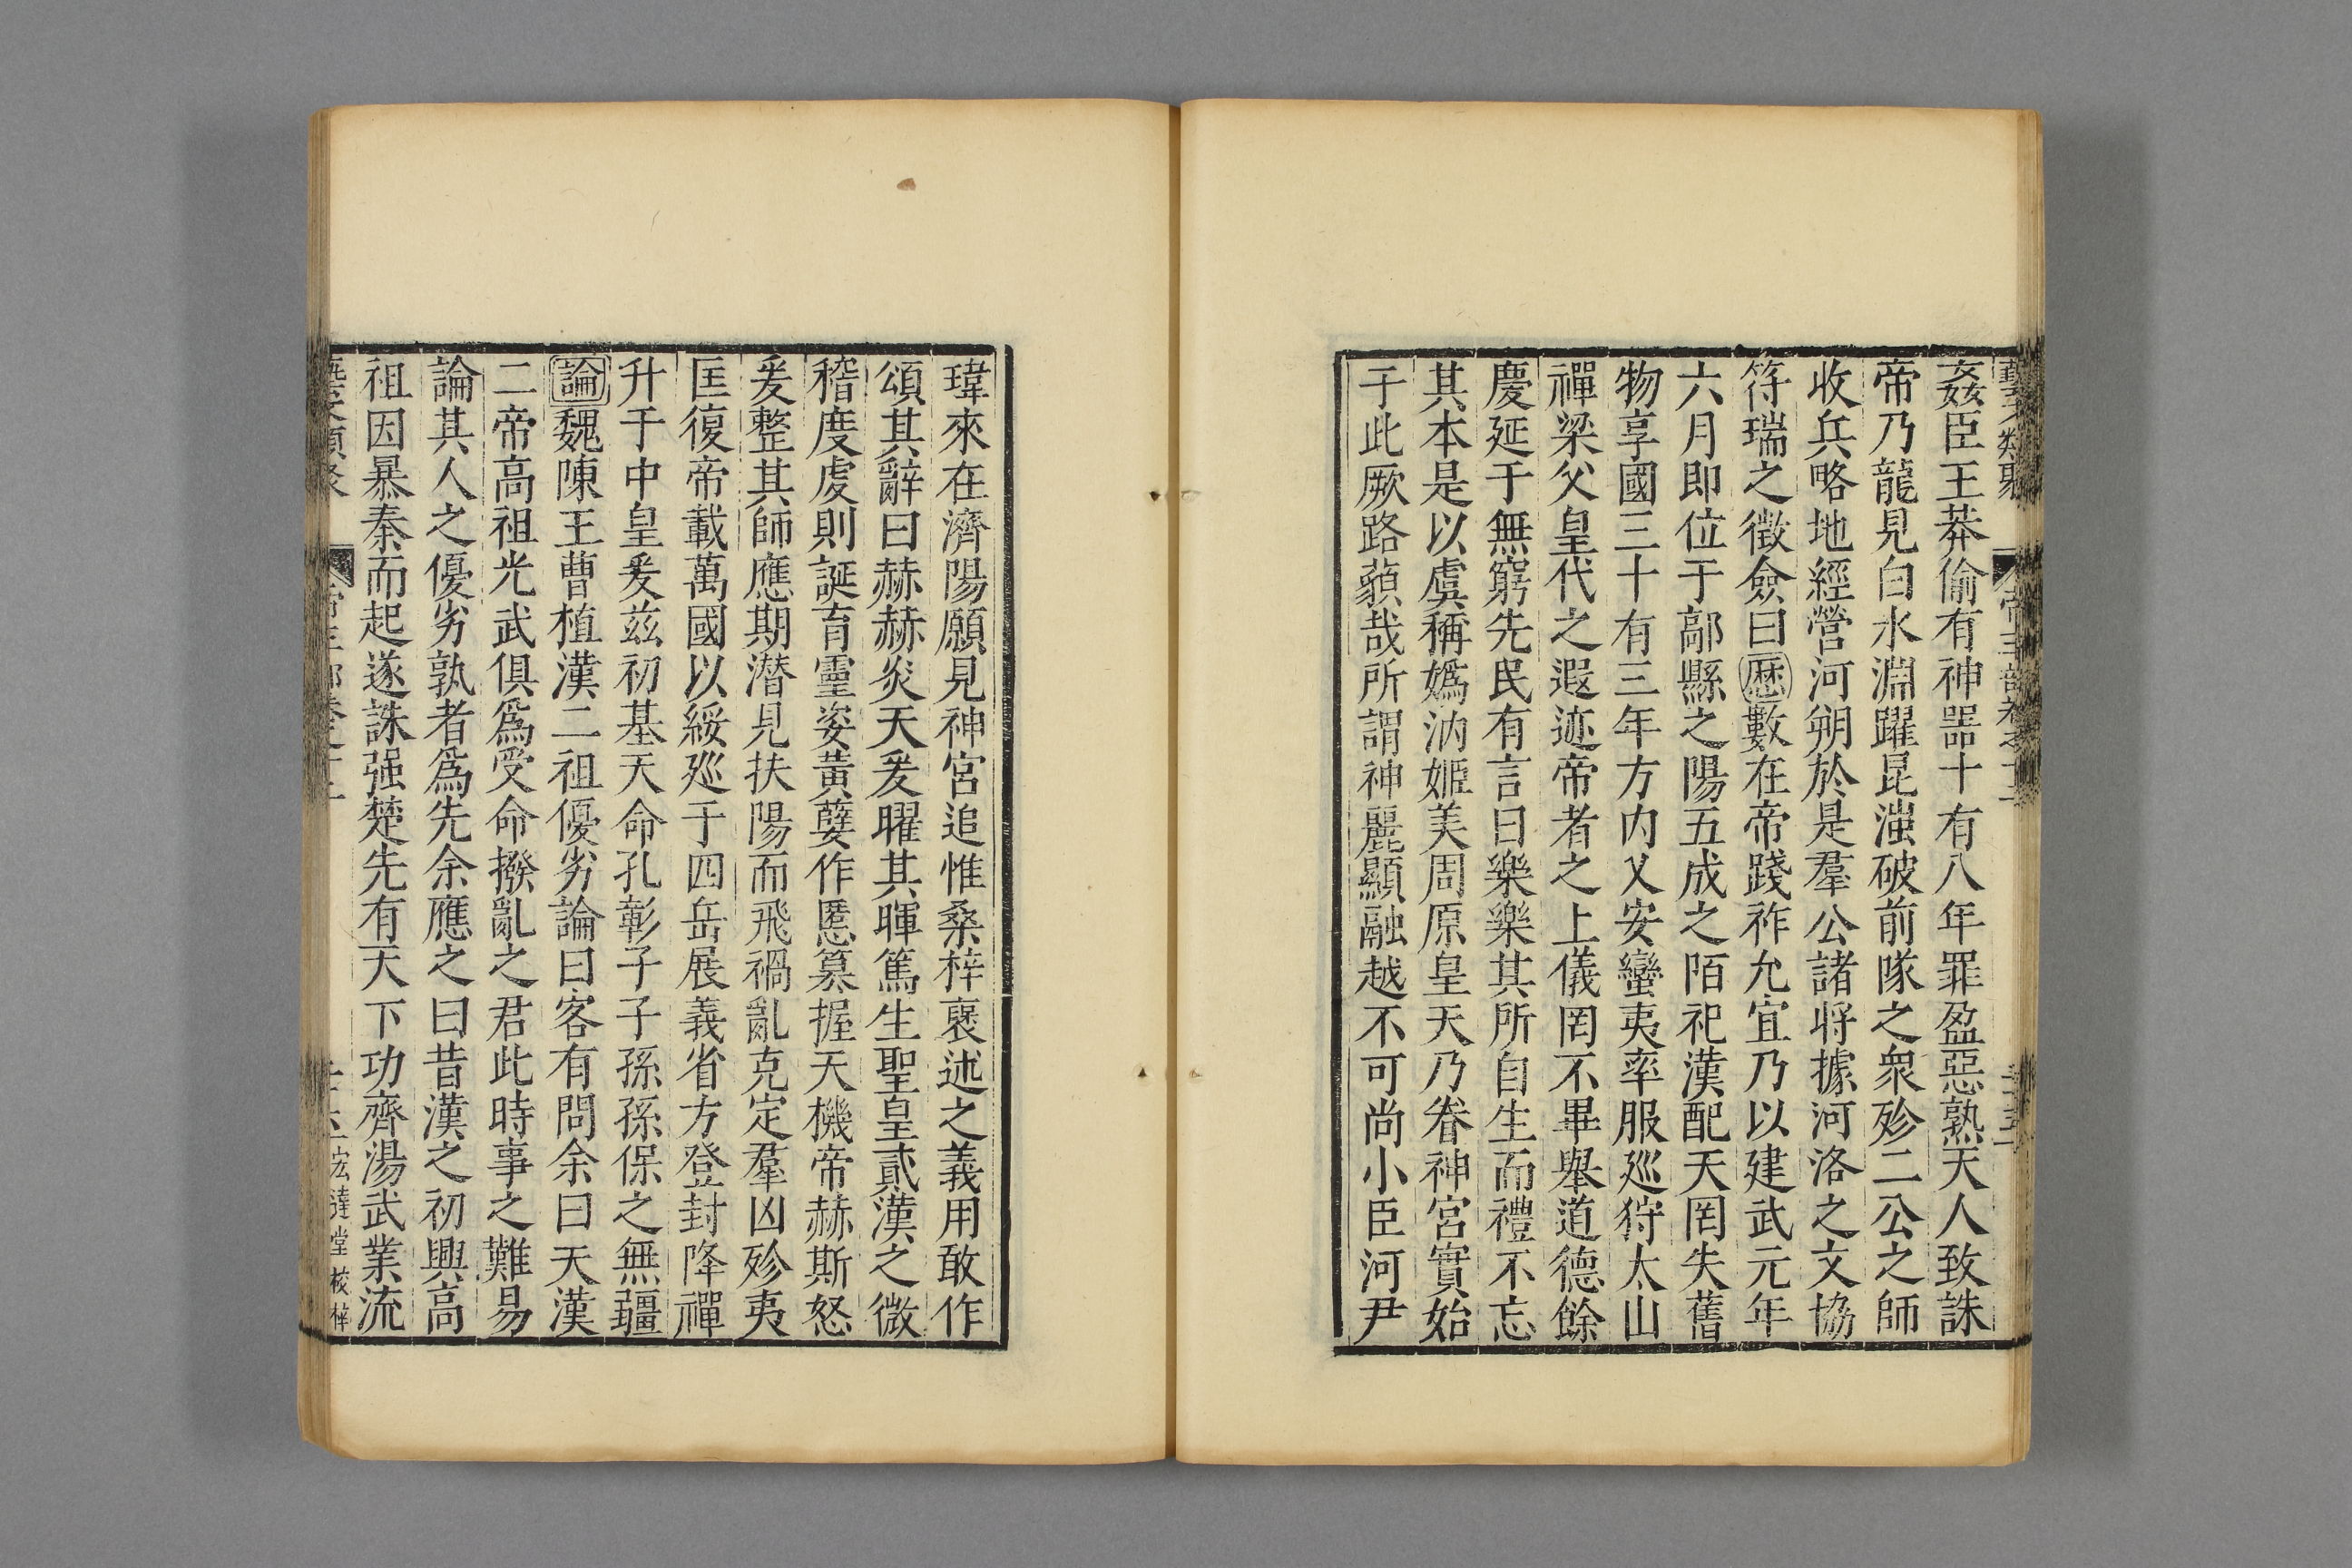 姦臣王莽偷有神噐十有八年罪盈惡熟天人致誅
帝乃龍見白水淵躍昆滍破前隊之衆殄二公之師
收兵略地經營河朔於是羣公諸將據河洛之文協
符瑞之徵僉曰歴數在帝踐祚允宜乃以建武元年
六月即位于鄗縣之陽五成之陌祀漢配天罔失舊
物享國三十有三年方内乂安蠻夷率服廵狩太山
禪梁父皇代之遐迹帝者之上儀罔不畢舉道德餘
慶延于無窮先民有言曰樂樂其所自生而禮不忘
其本是以虞稱嬀汭姬美周原皇天乃眷神宮實始
于此厥路藐哉所謂神麗顯融越不可尚小臣河尹
瑋來在濟陽願見神宮追惟桑梓裦述之義用敢作
頌其辭曰赫赫炎天爰曜其暉篤生聖皇貳漢之微
稽度虔則誕育靈姿黃孽作慝篡握天機帝赫斯怒
爰整其師應期潜見扶陽而飛禍亂克定羣凶殄夷
匡復帝載萬國以綏廵于四岳展義省方登封降禪
升于中皇爰兹初基天命孔彰子子孫孫保之無疆
論魏陳王曹植漢二祖優劣論曰客有問余曰天漢
二帝高祖光武俱爲受命撥亂之君此時事之難易
論其人之優劣孰者爲先余應之曰昔漢之初興高
祖因暴秦而起遂誅强楚先有天下功齊湯武業流
宏達堂校梓